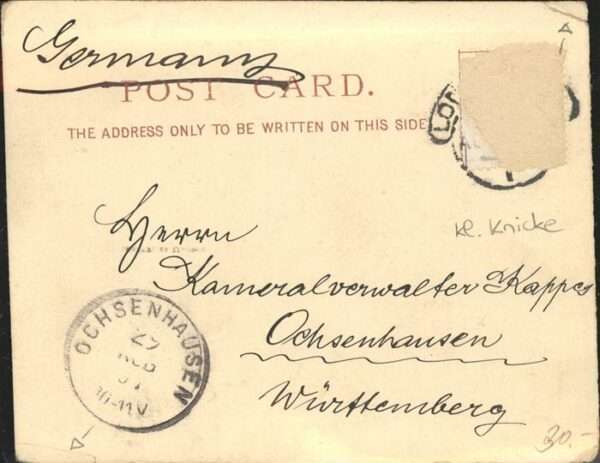 Germany
POST CARD.
THE ADDRESS ONLY TO BE WRITTEN ON THIS SIDE
LO
kl. Knicke
Herrn
Kameralverwalter Kappes
Ochsenhausen
Württemberg
OCHSENHAUSEN
27
10-11V
30.-